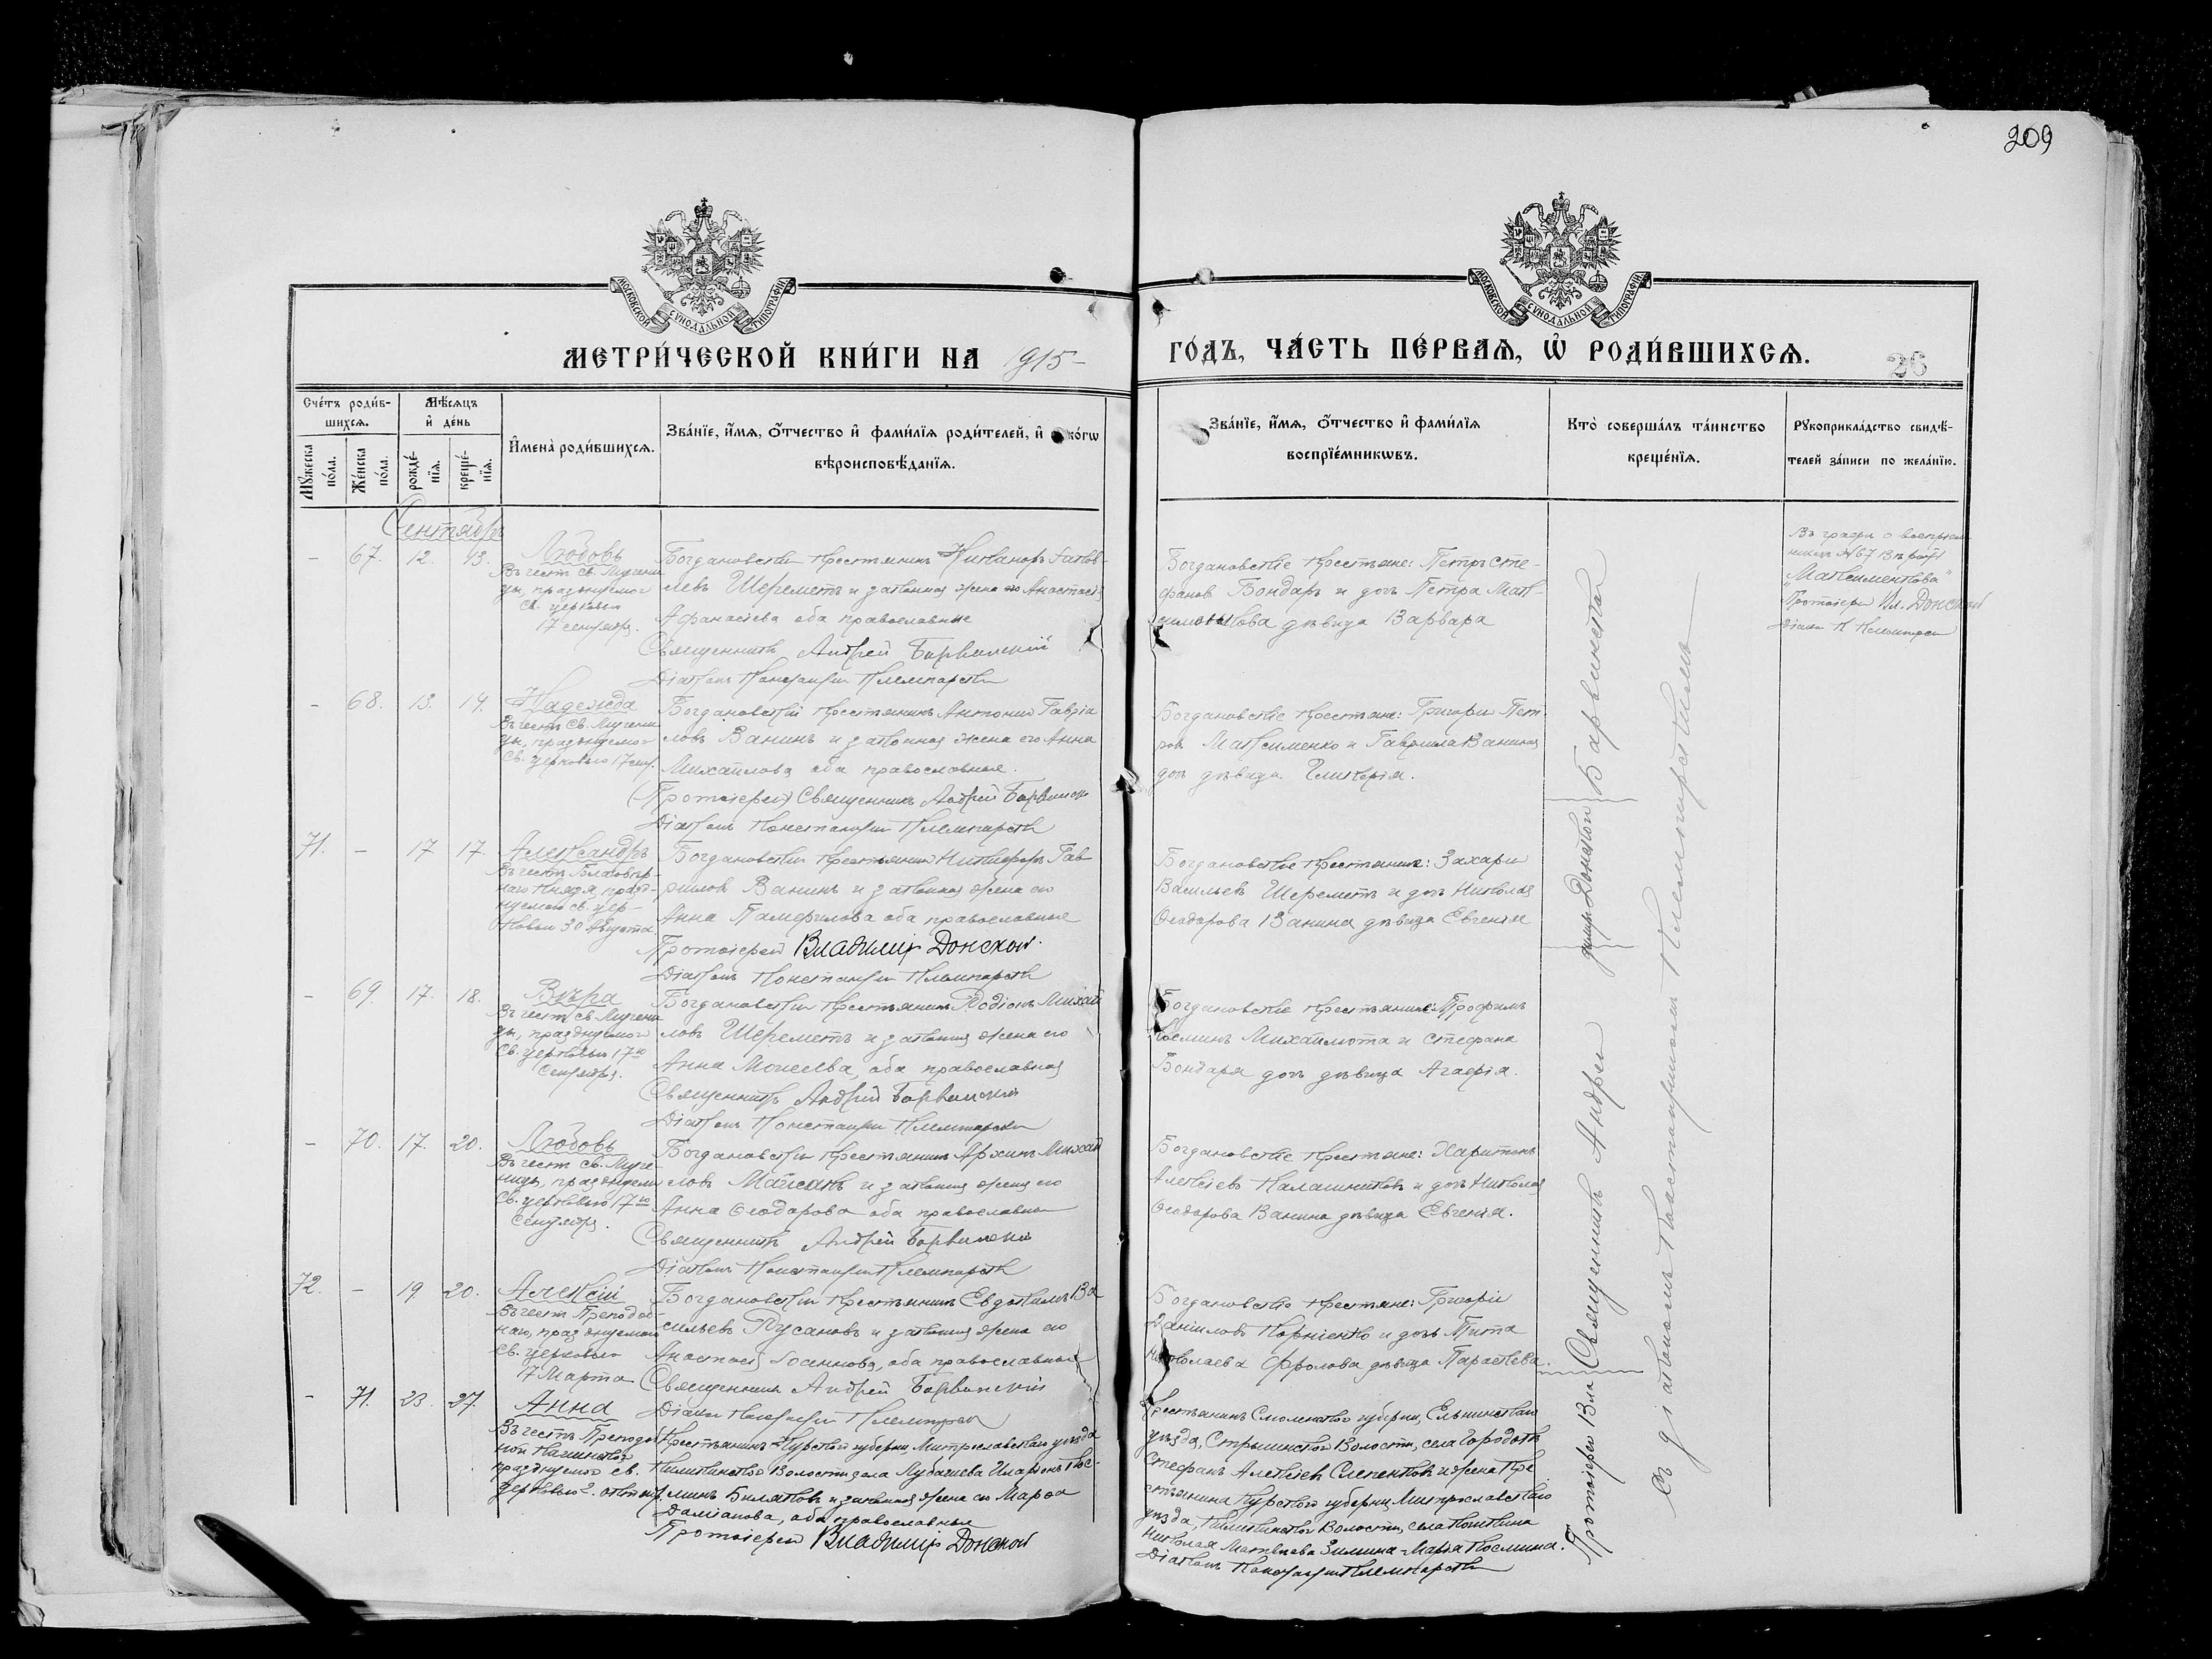 209
МОСКОВСКОЙ СУНОДАЛЬНОЙ ТИПОГРАФІИ
МОСКОВСКОЙ СУНОДАЛЬНОЙ ТИПОГРАФІИ
МЕТРИ́ЧЕСКОЙ КНИ́ГИ НА 1915
ГО́ДЪ, ЧА́СТЬ ПЕ́РВАЯ, Ѡ҆ РОДИ́ВШИХСѦ.
26
Сче́тъ роди́в-
шихсѧ.
Мѣ́сѧцъ
и҆ де́нь
Мꙋ́жеска
по́ла.
Же́нска
по́ла.
рожде́-
нїѧ.
креще́-
нїѧ.
И҆мена̀ роди́вшихсѧ.
Зва́нїе, и҆́мѧ, ѻ҆́тчество и҆ фами́лїѧ роди́телей, и҆ ко́гѡ
вѣроисповѣ́данїѧ.
Зва́нїе, и҆́мѧ, ѻ҆́тчество и҆ фами́лїѧ
воспрїе́мникѡвъ.
Кто̀ соверша́лъ та́инство
креще́нїѧ.
Рꙋкоприкла́дство свидѣ́-
телей за́писи по жела́нїю.
Сентябрь
- 67. 12. 13. Любовь
Въ честь св. Мучени-
цы, празднуемой
св. церковью
17 сентября.
Богдановскій крестьянинъ Никаноръ Іаков-
левъ Шереметъ и законная жена его Анастасія
Афанасіева оба православные
Священникъ Андрей Барвинскій
Діаконъ Константинъ
Богдановскіе крестьяне: Петръ Сте-
фановъ Бондарь и дочь Петра Мак-
сименкова дѣвица Варвара
Въ графѣ о воспріем-
никахъ № 67
"Максименкова"
Протоіерей Вл. Донской
Діаконъ К
- 68. 13. 14. Надежда
Въ честь Св. Мучени-
цы, празднуемой
Св. церковью 17 сент.
Богдановскій крестьянинъ Антоній Гавріи-
ловъ Ванинъ и законная жена его Анна
Михайлова оба православные.
(Протоіерей) Священникъ Андрей Барвинскій
Діаконъ Константинъ
Богдановскіе крестьяне: Григорій Пет-
ровъ Максименко и Гавріила Ванина
дочь дѣвица Гликерія.
71. - 17 17. Александръ
Въ честь Благовѣр-
наго Князя, празд-
нуемаго св. цер-
ковью 30 Августа
Богдановскій крестьянинъ Никифоръ Гав-
риловъ Ванинъ и законная жена его
Анна Памфилова оба православные
Протоіерей Владимір Донской.
Діаконъ Константинъ
Богдановскіе крестьяне: Захарій
Васильевъ Шереметъ и дочь Николая
Ѳеодорова Ванина дѣвица Евгенія
- 69. 17. 18. Вѣра
Въ честь св. Мучени-
цы, празднуемой
Св. церковью 17го
Сентября.
Богдановскій крестьянинъ Родіонъ Михай-
ловъ Шереметъ и законная жена его
Анна Моисеева, оба православные
Священникъ Андрей Барвинскій
Діаконъ Константинъ
Богдановскіе крестьяне: Трофимъ
Косминъ Михайлюта и Стефана
Бондаря дочь дѣвица Агафія.
- 70. 17. 20. Любовь
Въ честь св. Муче-
ницы, празднуемой
Св. церковью 17го
Сентября.
Богдановскій крестьянинъ Архипъ Михай-
ловъ Майсакъ и законная жена его
Анна Ѳеодорова оба православные
Священникъ Андрей Барвинскій
Діаконъ Константинъ
Богдановскіе крестьяне: Харитонъ
Алексіевъ Калашниковъ и дочь Николая
Ѳеодорова Ванина дѣвица Евгенія.
72. - 19. 20. Алексій
Въ честь Преподоб-
наго, празднуемаго
Св. церковью
17 Марта
Богдановскій крестьянинъ Евдокимъ Ва-
сильевъ Русановъ и законная жена его
Анастасія Іоаннова, оба православные
Священникъ Андрей Барвинскій
Діаконъ Константинъ
Богдановскіе крестьяне: Григорій
Даніиловъ Корніенко и дочь Тита
Николаева Фролова дѣвица Параскева.
- 71. 23. 27. Анна
Въ честь Преподоб-
ной Кашинской
празднуемой св.
Церковью 2. октября.
Крестьянинъ Курской губерніи, Дмитріевскаго уѣзда
Волости села Иларіонъ Кос-
минъ и законная жена его Марѳа
Даміанова, оба православные
Протоіерей Владимір Донской
Крестьянинъ Смоленской губерніи, Ельнинскаго
уѣзда, Волости, села Городокъ
Стефанъ Алексіевъ и жена Кре-
стьянина Курской губерніи
уѣзда, Волости, села
Николая Матвѣева Зимина - Марія Космина.
Діаконъ Константинъ
Протоіерей Владиміръ Донской
Священникъ Андрей Барвинскій
съ діакономъ Константиномъ